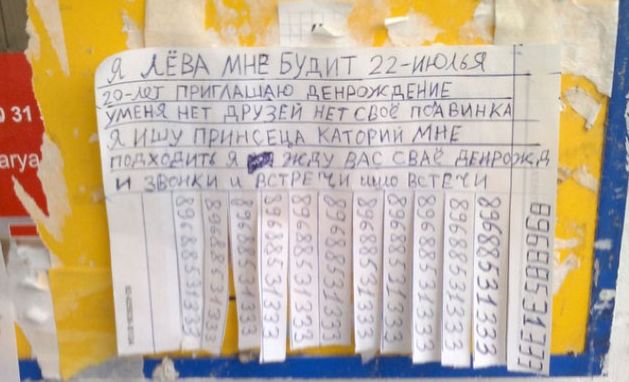 Я ЛЁВА МНЕ БУДИТ 22-ИЮЛЬЯ
20-ЛЕТ ПРИГЛАШАЮ ДЕНРОЖДЕНИЕ
УМЕНЯ НЕТ ДРУЗЕЙ НЕТ СВОЁ ПОАВИНКА
Я ИШУ ПРИНСЕЦА КАТОРИЙ МНЕ
ПОДХОДИТЬ Я ЖДУ ВАС СВАЁ ДЕНРОЖД
И ЗВОНКИ И ВСТРЕЧИ ВСТЕЧИ
89688531333
89688531333
89688531333
89688531333
89688531333
89688531333
89688531333
89688531333
89688531333
89688531333
89688531333
89688531333
0 31
arya